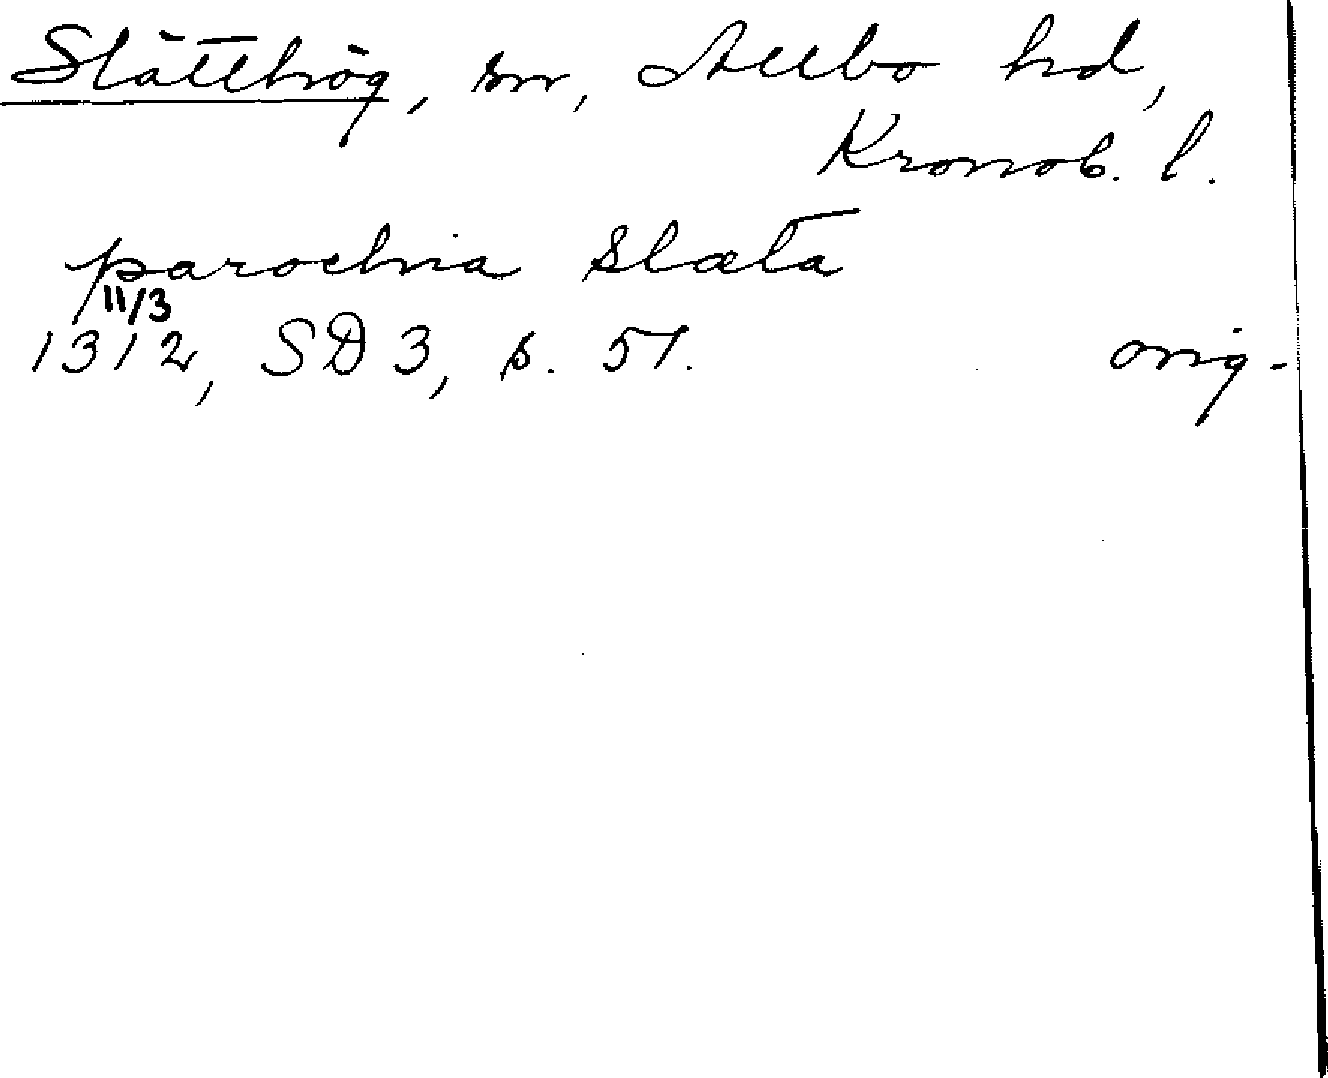 Slätthög, sn, Allbo hd,
Kronob. l.
parochia Slæta
11/3
1312, SD 3, s. 51. orig.